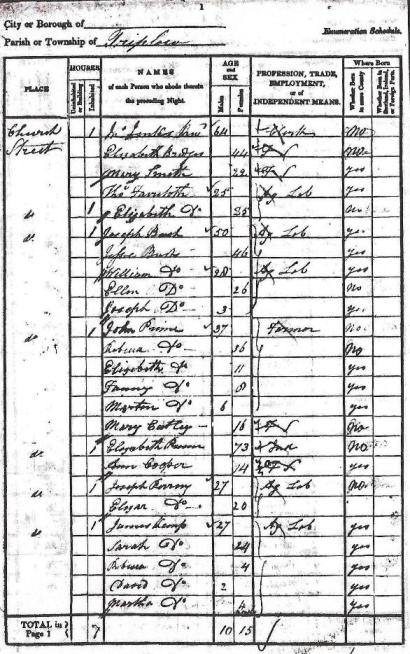 1
City or Borough of
Enumeration Schedule.
Parish or Township of Triplow
PLACE
HOUSES
Uninhabited or Building
Inhabited
NAMES
of each Person who abode therein the preceding Night.
AGE and SEX
Males
Females
PROFESSION, TRADE, EMPLOYMENT, or of INDEPENDENT MEANS.
Where Born
Whether Born in same County
Whether Born in Scotland, Ireland, or Foreign Parts.
Church Street 1 64 Clerk No
Elizabeth Bridges 44 No
Mary Smith 22 yes
Thos 25 Ag Lab yes
do 1 Elizabeth Do 25 No
do 1 Joseph Bush 50 Ag Lab yes
Bush 46 yes
William Do Ag Lab yes
Ellen Do 26 No
Joseph Do 3 yes
do 1 John Prime 37 Farmer No
Rebecca Do 36 No
Elizabeth Do 11 yes
Fanny Do 8 yes
Do 6 yes
Mary 16 No
do 1 Elizabeth 73 Ind No
Ann Cooper 14 yes
do 1 Joseph 27 Ag Lab No
Do 20
do 1 James Kemp 27 Ag Lab yes
Sarah Do 24 yes
Rebecca Do 4 yes
David Do 2 yes
Martha Do 4 yes
TOTAL in Page 1 7 10 15